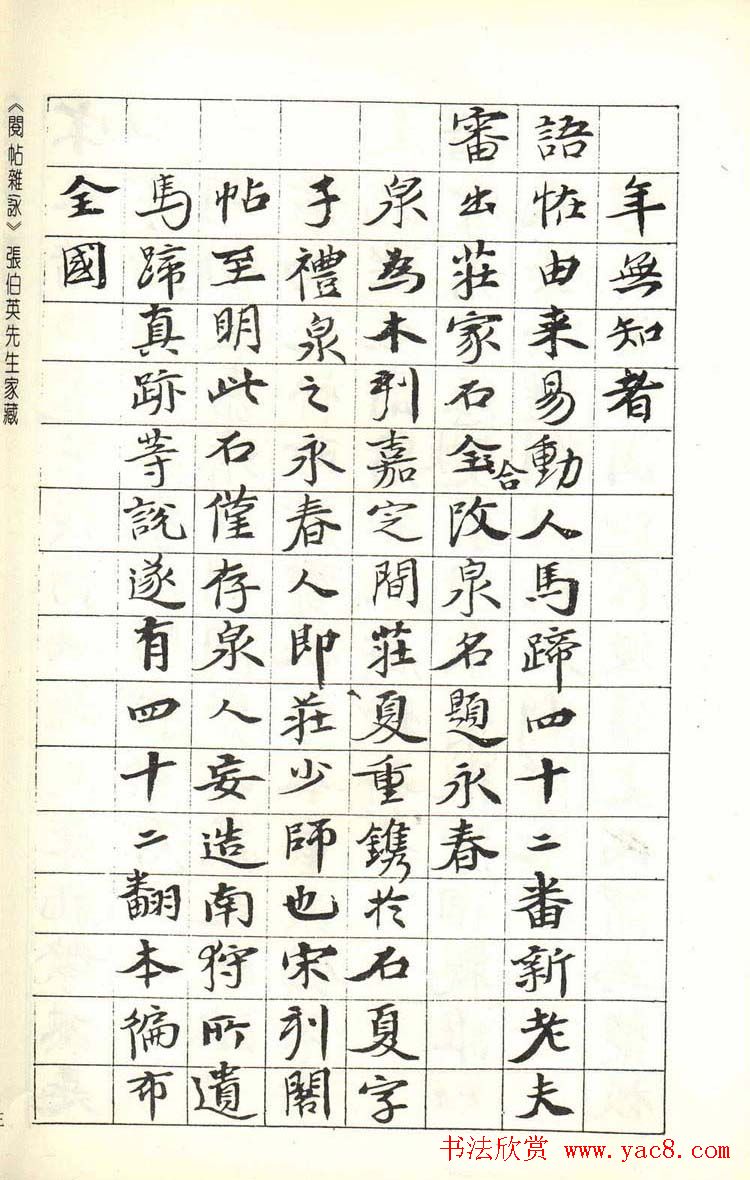 年無知者
語恠由来易動人馬蹄四十二番新老夫
審出莊家石全合改泉名題永春
泉為木刊嘉定間莊夏重鐫於石夏字
子禮泉之永春人即莊少師也宋刊閣
帖至明此石僅存泉人妄造南狩所遺
馬蹄真跡等說遂有四十二翻本徧布
全國
《閱帖雜詠》張伯英先生家藏
三
书法欣赏 www.yac8.com